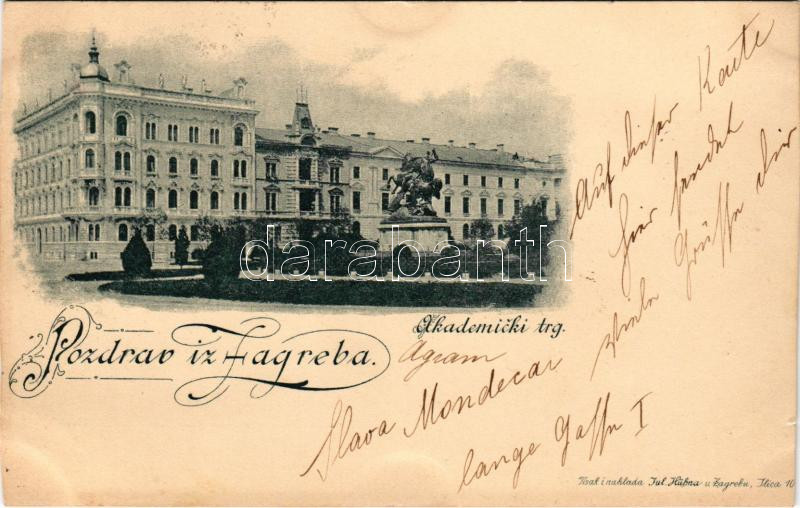 Auf dieser Karte
hier sendet
viele Grüsse dir
darabanth
Akademički trg.
Pozdrav iz Zagreba.
Agram
Slava Mondecar
lange Gasse I
Tisak i naklada Jul. Hühna u Zagrebu, Ilica 10